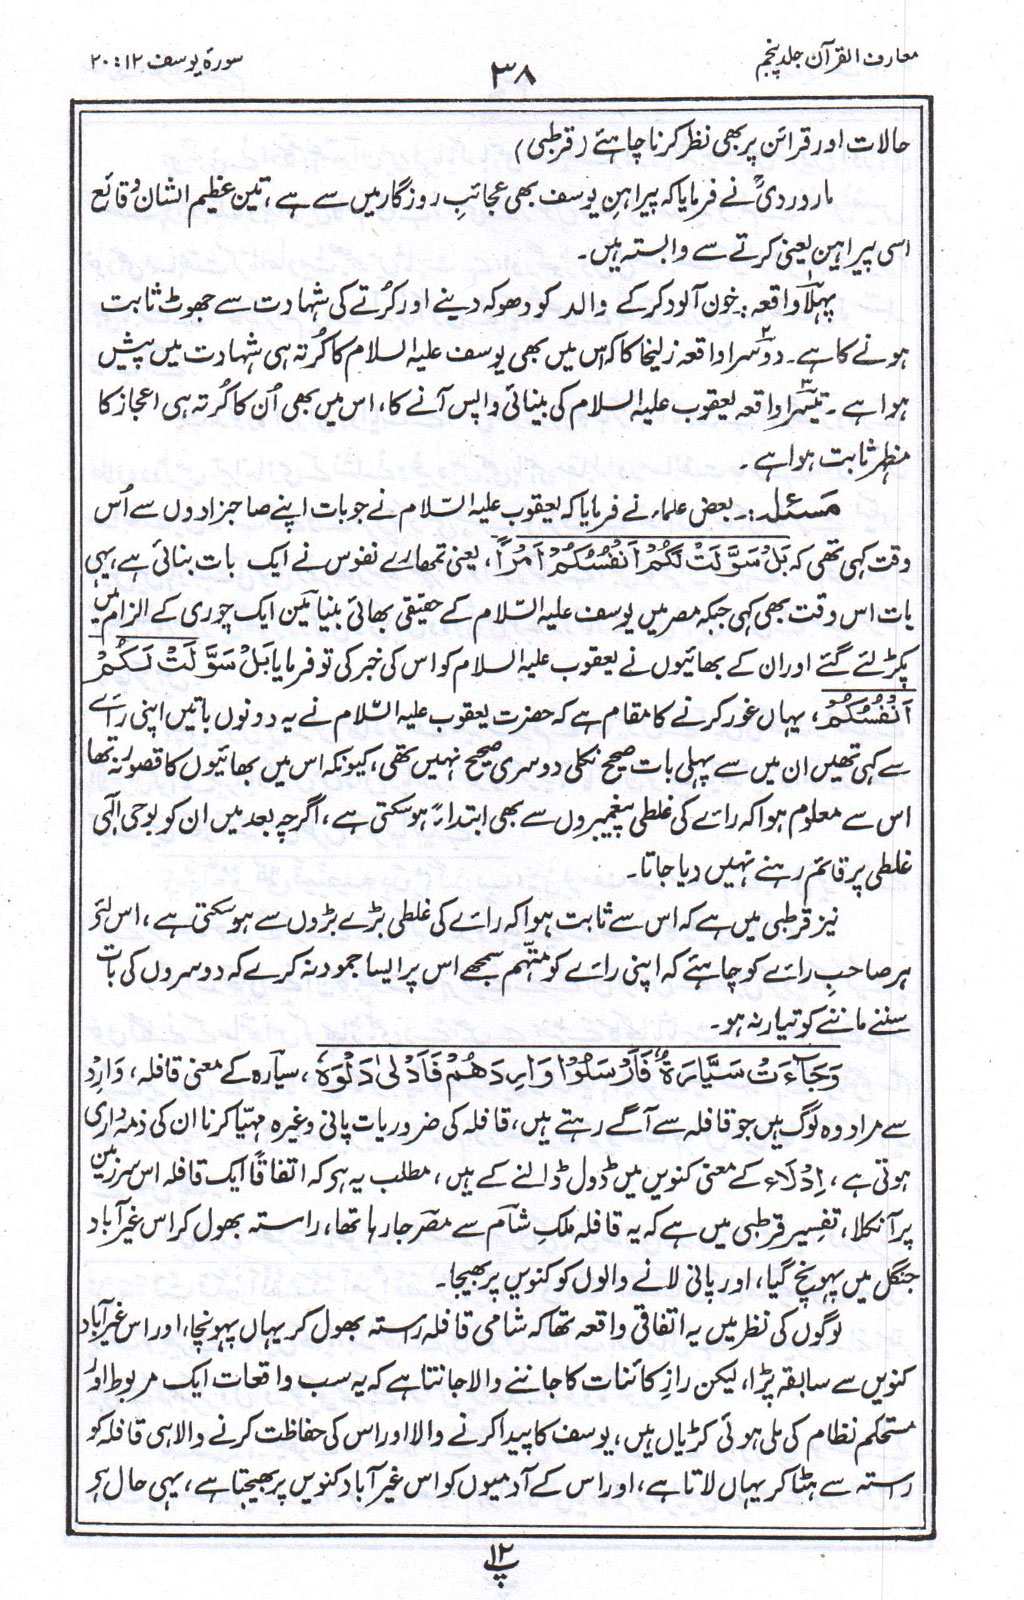 معارف القرآن جلد پنجم
۳۸
سورۂ یوسف ۱۲ : ۲۰
حالات اور قرائن پر بھی نظر کرنا چاہئے (قرطبی)
ماوردیؒ نے فرمایا کہ پیراہنِ یوسف بھی عجائبِ روزگار میں سے ہے، تین عظیم الشان وقائع
اسی پیراہن یعنی کرتے سے وابستہ ہیں۔
پہلا۱ واقعہ :۔ خون آلود کر کے والد کو دھوکہ دینے اور کُرتے کی شہادت سے جھوٹ ثابت
ہونے کا ہے۔ دوسرا۲ واقعہ زلیخا کا کہ اس میں بھی یوسف علیہ السلام کا کُرتہ ہی شہادت میں پیش
ہوا ہے۔ تیسرا۳ واقعہ یعقوب علیہ السلام کی بینائی واپس آنے کا، اس میں بھی اُن کا کُرتہ ہی اعجاز کا
مظہر ثابت ہوا ہے۔
مسئلہ :۔ بعض علماء نے فرمایا کہ یعقوب علیہ السّلام نے جو بات اپنے صاحبزادوں سے اُس
وقت کہی تھی کہ بَلْ سَوَّلَتْ لَكُمْ اَنْفُسُكُمْ اَمْرًا، یعنی تمھارے نفوس نے ایک بات بنائی ہے، یہی
بات اس وقت بھی کہی جبکہ مصر میں یوسف علیہ السّلام کے حقیقی بھائی بنیامین ایک چوری کے الزام میں
پکڑ لئے گئے اور ان کے بھائیوں نے یعقوب علیہ السلام کو اس کی خبر کی تو فرمایا بَلْ سَوَّلَتْ لَكُمْ
اَنْفُسُكُمْ، یہاں غور کرنے کا مقام ہے کہ حضرت یعقوب علیہ السّلام نے یہ دونوں باتیں اپنی رائے
سے کہی تھیں ان میں سے پہلی بات صحیح نکلی دوسری صحیح نہیں تھی، کیونکہ اس میں بھائیوں کا قصور نہ تھا
اس سے معلوم ہوا کہ رائے کی غلطی پیغمبروں سے بھی ابتداءً ہو سکتی ہے، اگرچہ بعد میں ان کو بوحی الٰہی
غلطی پر قائم رہنے نہیں دیا جاتا۔
نیز قرطبی میں ہے کہ اس سے ثابت ہوا کہ رائے کی غلطی بڑے بڑوں سے ہو سکتی ہے، اس لئے
ہر صاحبِ رائے کو چاہئے کہ اپنی رائے کو متّہم سمجھے اس پر ایسا جمود نہ کرے کہ دوسروں کی بات
سننے ماننے کو تیار نہ ہو۔
وَجَآءَتْ سَيَّارَةٌ فَاَرْسَلُوْا وَارِدَهُمْ فَاَدْلٰى دَلْوَهٗ، سیارہ کے معنی قافلہ، وَارِدْ
سے مراد وہ لوگ ہیں جو قافلہ سے آگے رہتے ہیں، قافلہ کی ضروریات پانی وغیرہ مہیّا کرنا ان کی ذمہ داری
ہوتی ہے، اِدْلَاء کے معنی کنویں میں ڈول ڈالنے کے ہیں، مطلب یہ ہے کہ اتفاقًا ایک قافلہ اس سرزمین
پر آ نکلا، تفسیر قرطبی میں ہے کہ یہ قافلہ ملکِ شام سے مصر جا رہا تھا، راستہ بھول کر اس غیر آباد
جنگل میں پہونچ گیا، اور پانی لانے والوں کو کنویں پر بھیجا۔
لوگوں کی نظر میں یہ اتفاقی واقعہ تھا کہ شامی قافلہ راستہ بھول کر یہاں پہونچا، اور اس غیر آباد
کنویں سے سابقہ پڑا، لیکن رازِ کائنات کا جاننے والا جانتا ہے کہ یہ سب واقعات ایک مربوط اور
مستحکم نظام کی ملی ہوئی کڑیاں ہیں، یوسف کا پیدا کرنے والا اور اس کی حفاظت کرنے والا ہی قافلہ کو
راستہ سے ہٹا کر یہاں لاتا ہے، اور اس کے آدمیوں کو اس غیر آباد کنویں پر بھیجتا ہے، یہی حال ہے
۱۲
پ